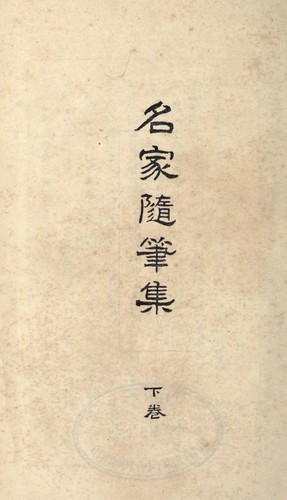 名家隨筆集
下卷